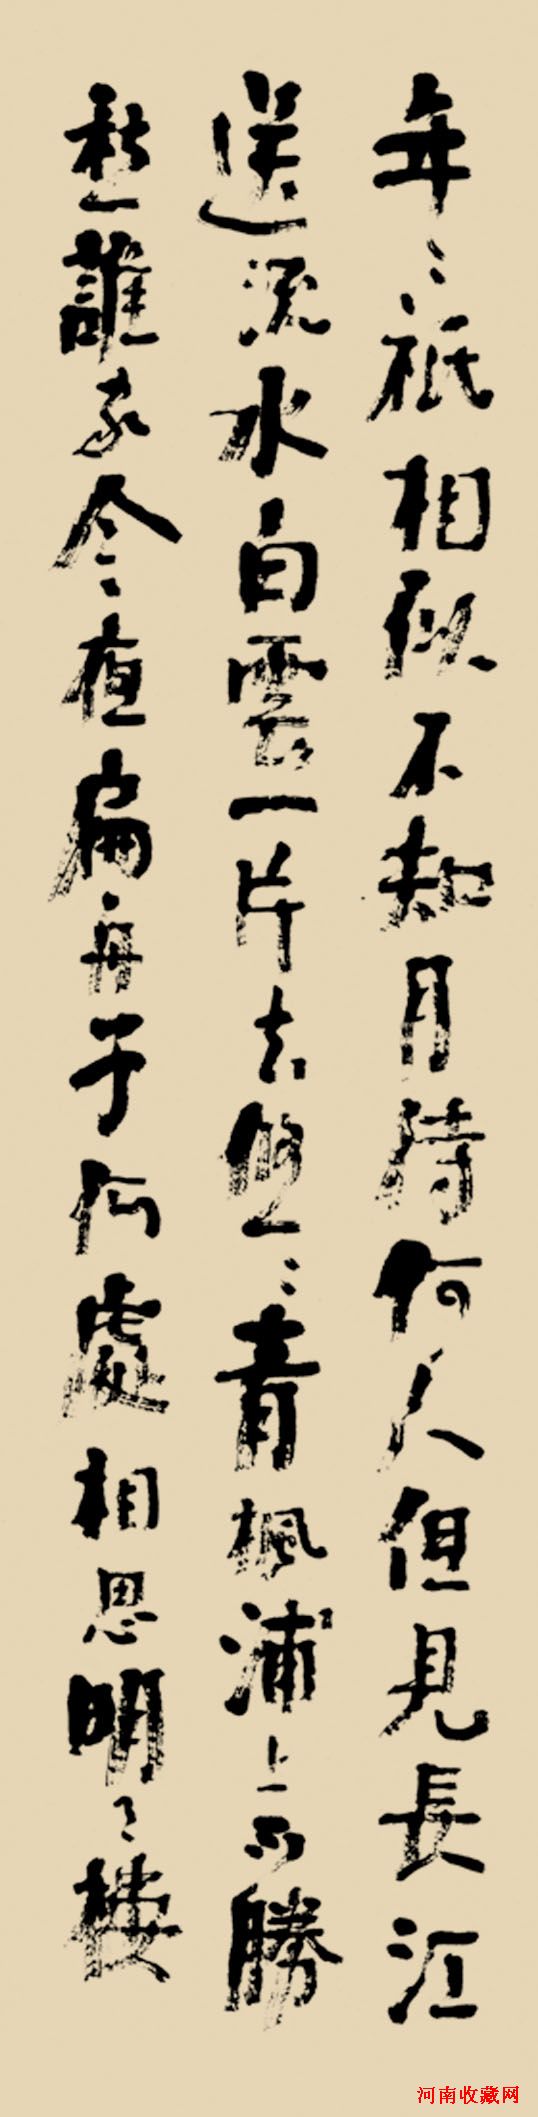 年々祇相似不知月待何人但見長江
送流水白雲一片去悠々青楓浦上不勝
愁誰家今夜扁舟子何處相思明々樓
河南收藏网